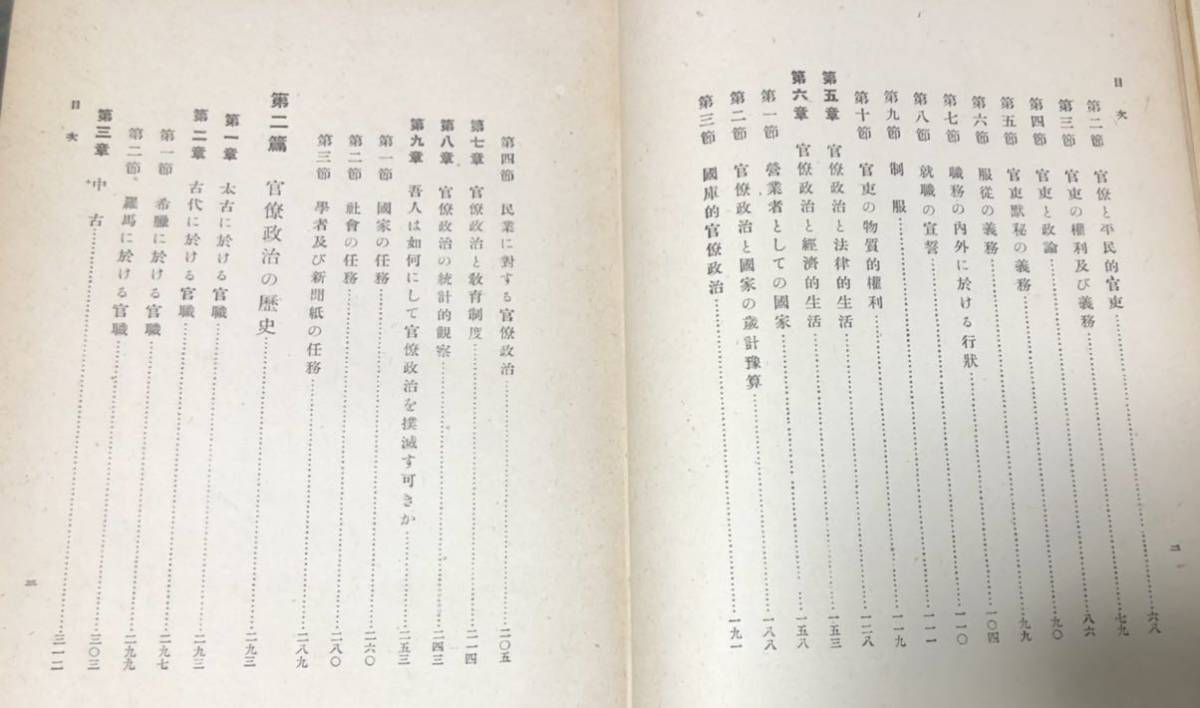 目次
第二節 官僚と平民的官吏……六八
第三節 官吏の權利及び義務……七九
第四節 官吏と政論……八六
第五節 官吏默秘の義務……九〇
第六節 服從の義務……九九
第七節 職務の內外に於ける行狀……一〇四
第八節 就職の宣誓……一一〇
第九節 制服……一一一
第十節 官吏の物質的權利……一一九
第五章 官僚政治と法律的生活……一二八
第六章 官僚政治と經濟的生活……一五三
第一節 營業者としての國家……一五八
第二節 官僚政治と國家の歲計豫算……一八八
第三節 國庫的官僚政治……一九一
二
第四節 民業に對する官僚政治……二〇五
第七章 官僚政治と敎育制度……二一四
第八章 官僚政治の統計的觀察……二四三
第九章 吾人は如何にして官僚政治を撲滅す可きか……二五三
第一節 國家の任務……二六〇
第二節 社會の任務……二八〇
第三節 學者及び新聞紙の任務……二八九
第二篇 官僚政治の歷史……二九三
第一章 太古に於ける官職……二九三
第二章 古代に於ける官職……二九七
第一節 希臘に於ける官職……二九九
第二節 羅馬に於ける官職……三〇三
第三章 中古……三一二
目次
三